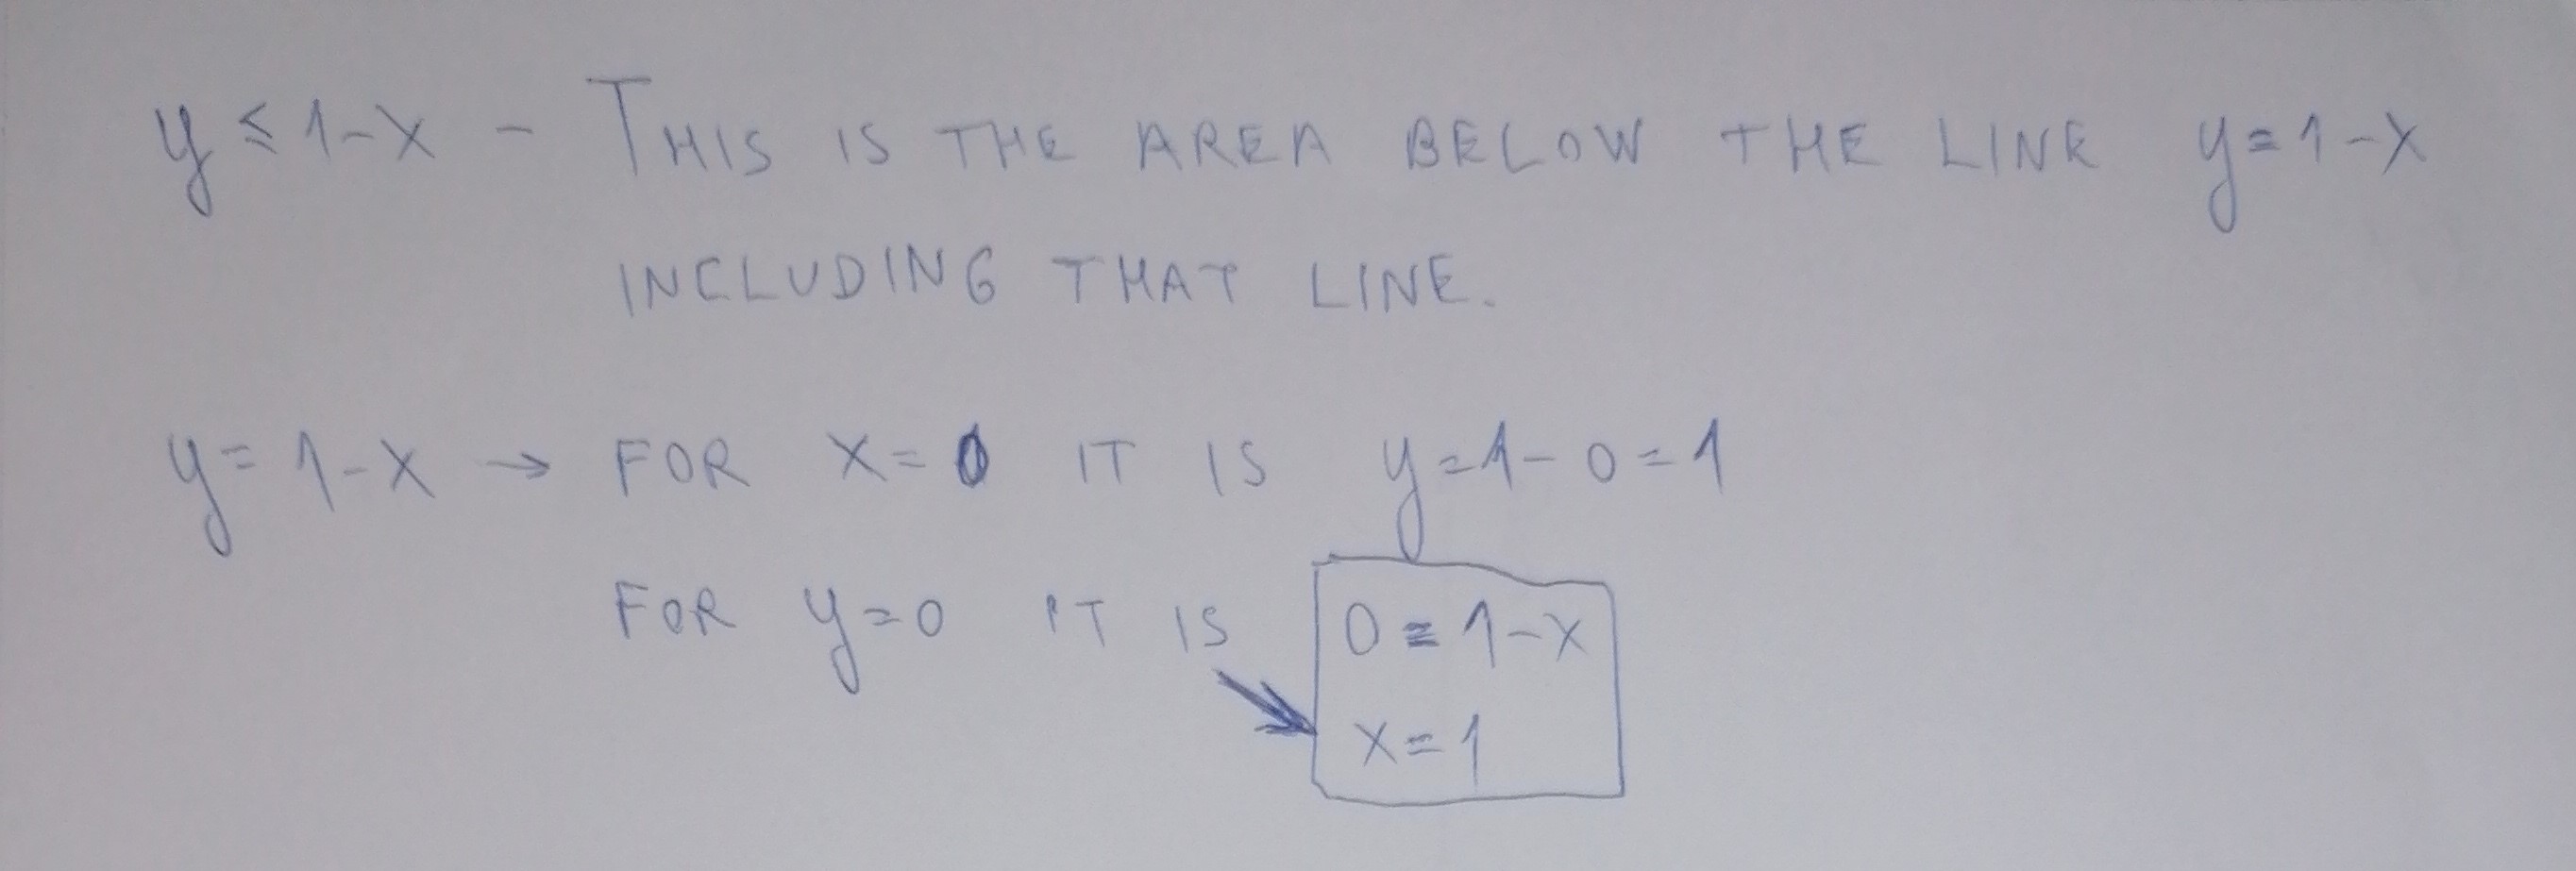 y ≤ 1-x - THIS IS THE AREA BELOW THE LINE y=1-x
INCLUDING THAT LINE.
y=1-x → FOR x=0 IT IS y=1-0=1
FOR y=0 IT IS 0=1-x
x=1